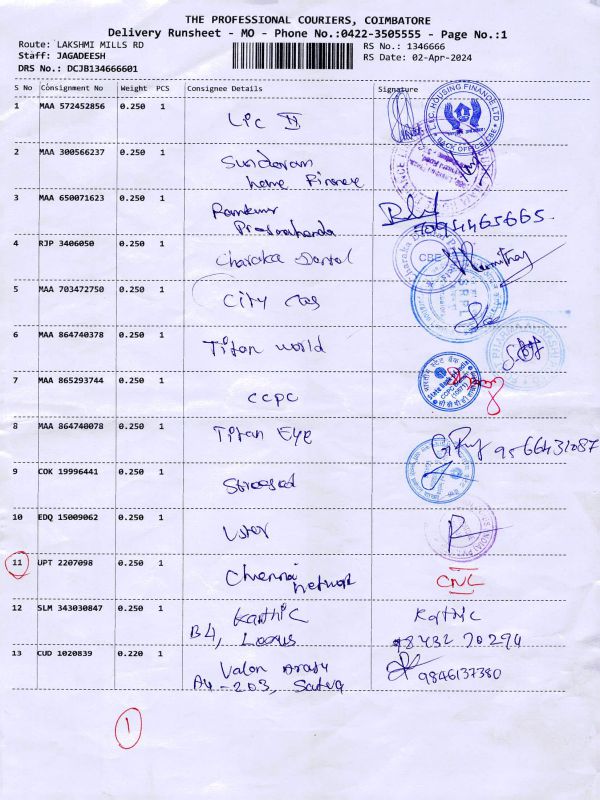 THE PROFESSIONAL COURIERS, COIMBATORE
Delivery Runsheet - MO - Phone No.:0422-3505555 - Page No.:1
Route: LAKSHMI MILLS RD
RS No.: 1346666
Staff: JAGADEESH
RS Date: 02-Apr-2024
DRS No.: DCJB134666601
S No Consignment No Weight PCS Consignee Details Signature
1 MAA 572452856 0.250 1 LIC II
HOUSING FINANCE LTD
BACK OFFICE CBE
2 MAA 300566237 0.250 1 Sundaram
home Finance
3 MAA 650071623 0.250 1 Ramkumar
7094465665
4 RJP 3406050 0.250 1 Charaka Dental
CBE
5 MAA 703472750 0.250 1 City
6 MAA 864740378 0.250 1 Titan world
7 MAA 865293744 0.250 1 CCPC
8 MAA 864740078 0.250 1 Titan Eye 9566431087
9 COK 19996441 0.250 1
10 EDQ 15009062 0.250 1
11 UPT 2207098 0.250 1 Chennai
network CNL
12 SLM 343030847 0.250 1 Karthic Karthic
B4, 98432 70294
13 CUD 1020839 0.220 1 Valan
A4-203, 9846137380
1